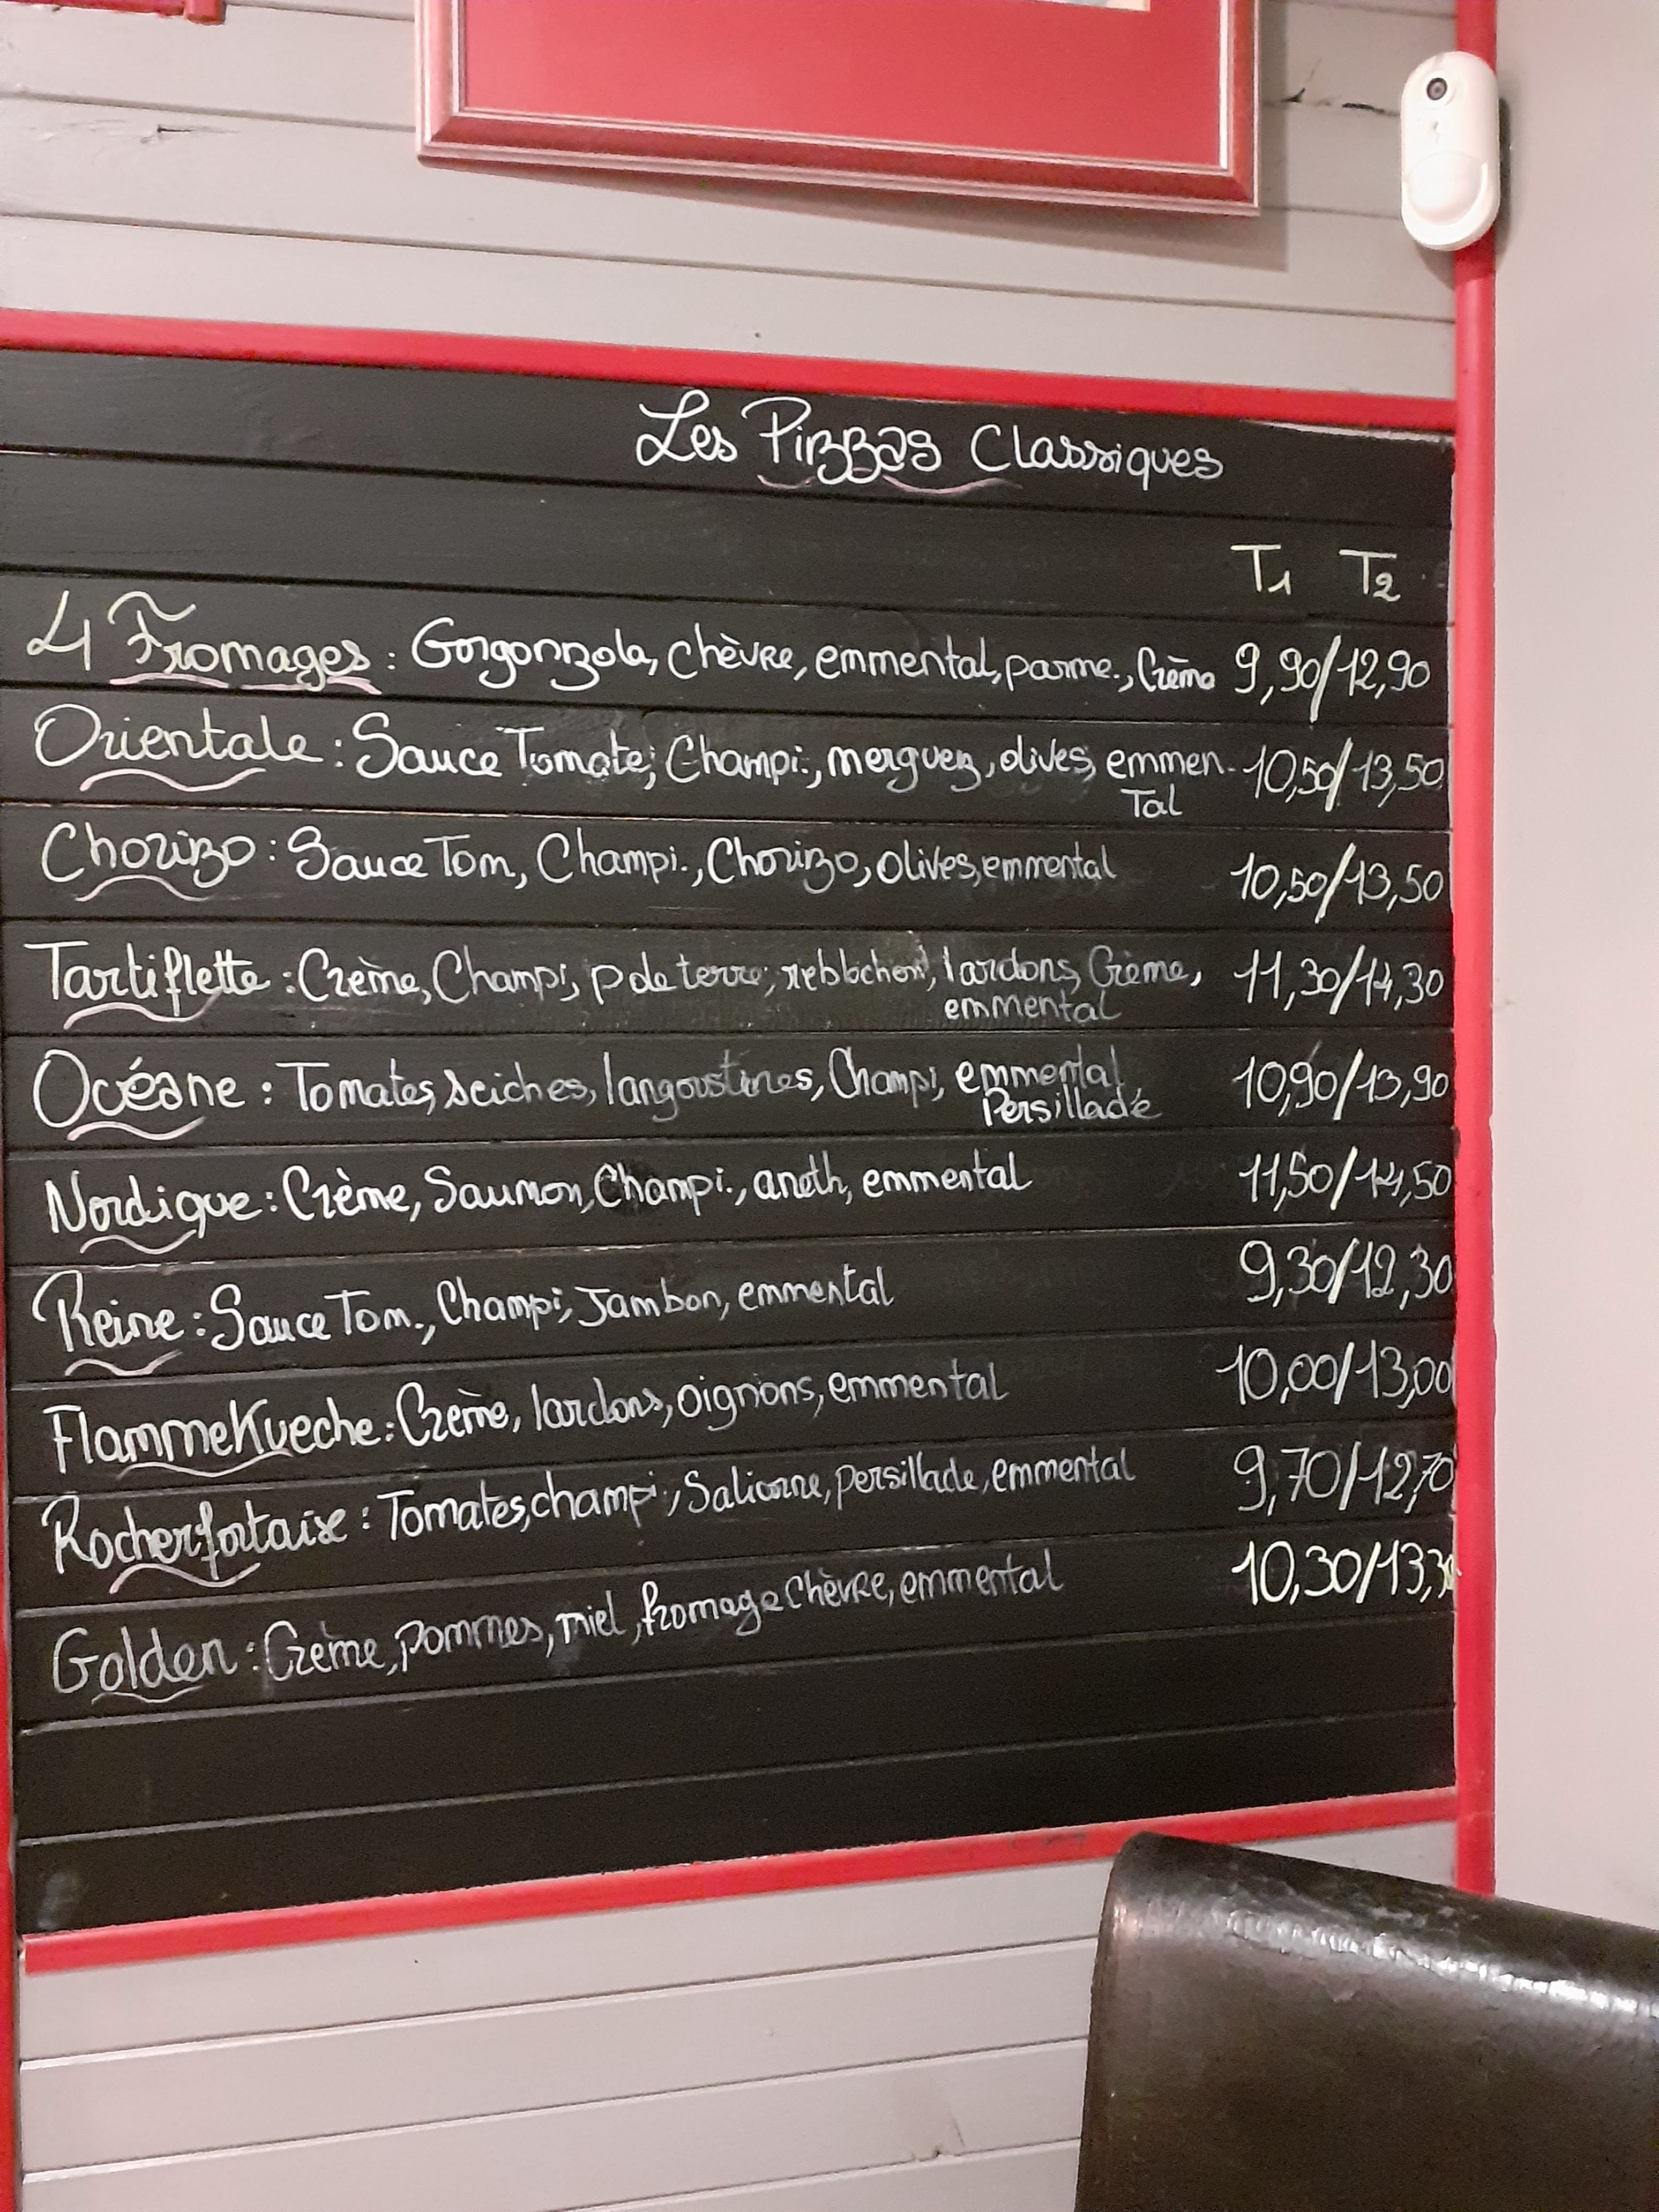 Les Pizzas Classiques
T1 T2
4 Fromages : Gorgonzola, chèvre, emmental, parme., Crème 9,90/12,90
Orientale : Sauce Tomate, Champi., merguez, olives, emmen- 10,50/13,50
Tal
Chorizo : Sauce Tom, Champi., Chorizo, Olives, emmental 10,50/13,50
Tartiflette : Crème, Champi, p de terre, reblochon, lardons, Crème, 11,30/14,30
emmental
Océane : Tomates, seiches, langoustines, Champi, emmental, 10,90/13,90
Persillade
Nordique : Crème, Saumon, Champi., aneth, emmental 11,50/14,50
Reine : Sauce Tom., Champi, Jambon, emmental 9,30/12,30
Flammekueche : Crème, lardons, oignons, emmental 10,00/13,00
Rocherfortaise : Tomates, champi., Salicorne, persillade, emmental 9,70/12,70
Golden : Crème, pommes, miel, fromage Chèvre, emmental 10,30/13,30